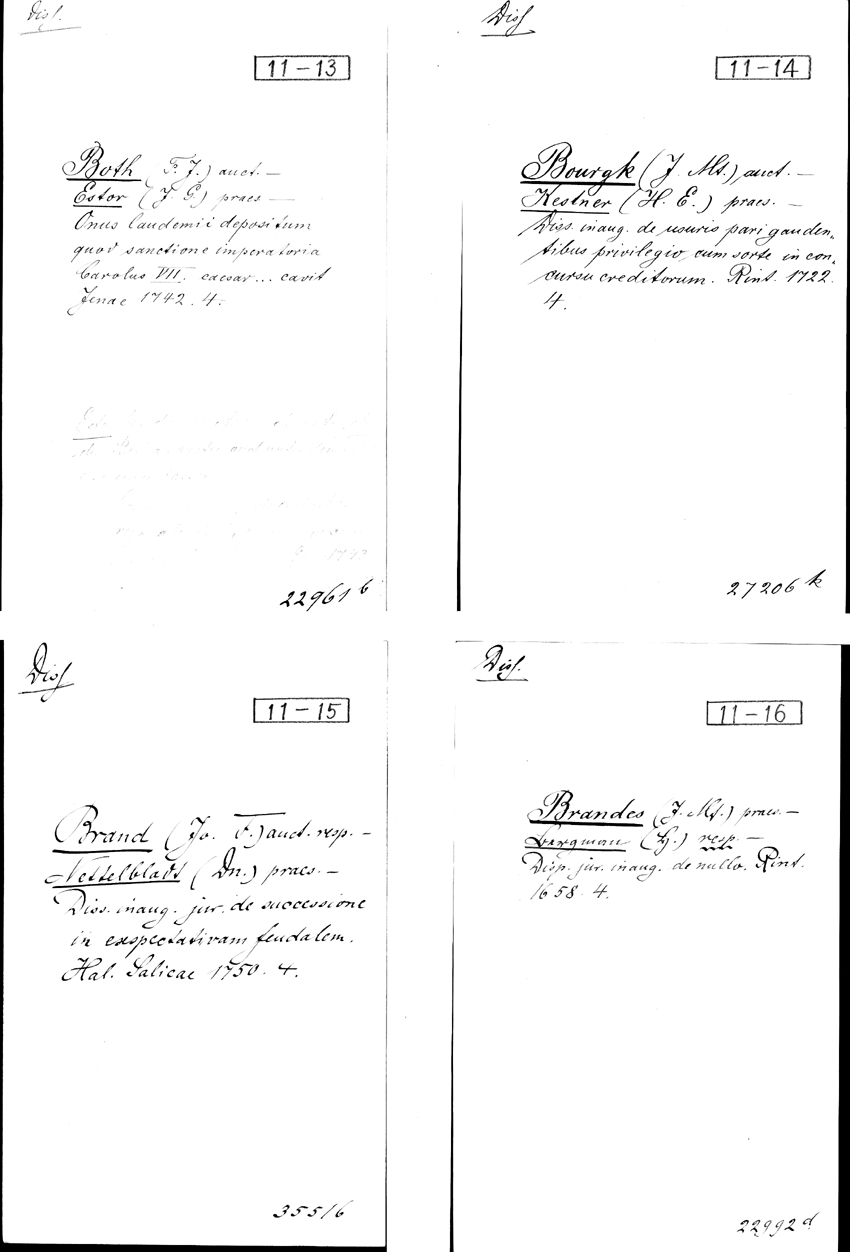 Diss.
11-13
Both (F. J.) auct. —
Estor (J. G.) praes —
Onus laudemii depositum
quod sanctione imperatoria
Carolus VII. caesar... cavit
Jenae 1742. 4.
22961 b
Diss
11-14
Bourgk (J. Mt.) auct. —
Kestner (H. E.) praes. —
Diss. inaug. de usuris pari gauden„
tibus privilegio cum sorte in con„
cursu creditorum. Rint. 1722.
4.
27206 k
Diss
11-15
Brand (Jo. F.) auct. resp. —
Nettelbladt (Dn.) praes. —
Diss. inaug. jur. de successione
in exspectativam feudalem.
Hal. Salicae 1750. 4.
35516
Diss.
11-16
Brandes (J. Mt.) praes. —
Bergman (H.) resp. —
Disp. jur. inaug. de nullo. Rint.
1658. 4.
22992 d.